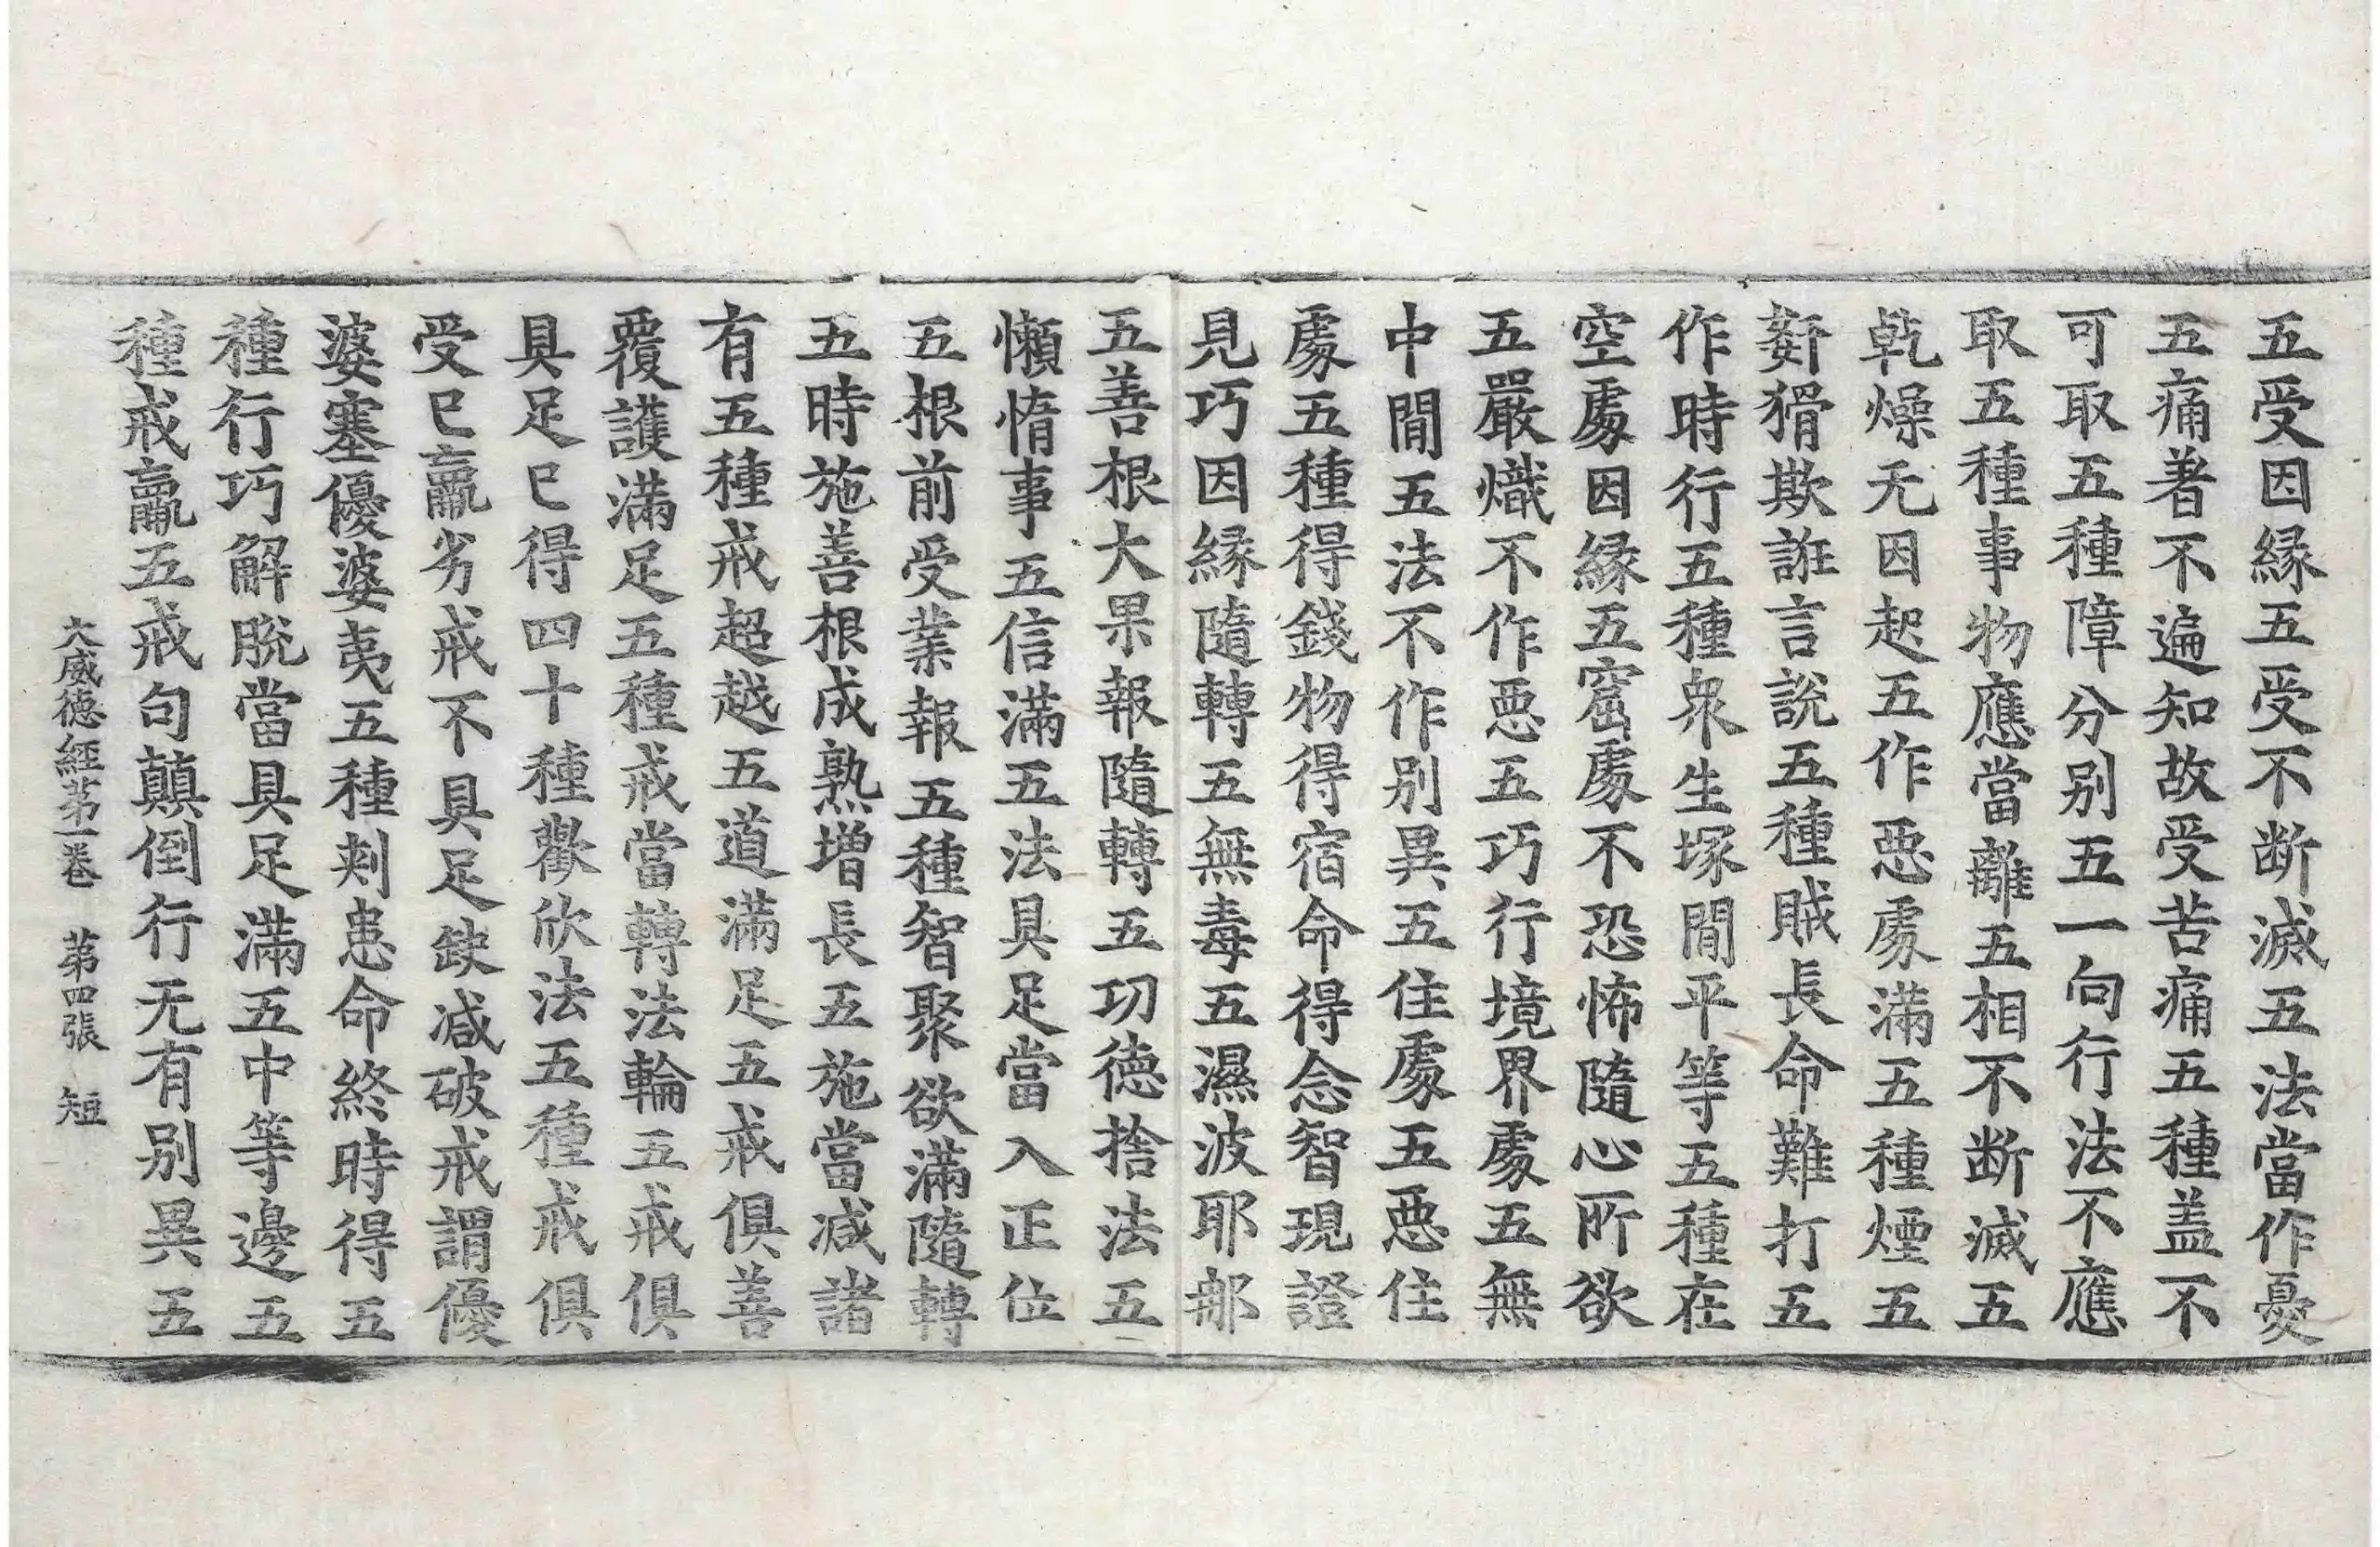 五受因縁五受不断滅五法當作憂
五痛著不遍知故受苦痛五種盖不
可取五種障分別五一句行法不應
取五種事物應當離五相不断滅五
乾燥无因起五作惡處滿五種煙五
姧猾欺誑言說五種賊長命難打五
作時行五種衆生塚間平等五種在
空處因縁五窟處不恐怖隨心所欲
五嚴熾不作惡五巧行境界處五無
中間五法不作別異五住處五惡住
處五種得錢物得宿命得念智現證
見巧因縁隨轉五無毒五濕波耶那
五善根大果報隨轉五功德捨法五
懶惰事五信滿五法具足當入正位
五根前受業報五種智聚欲滿隨轉
五時施善根成熟増長五施當減諸
有五種戒超越五道滿足五戒俱善
覆護滿足五種戒當轉法輪五戒俱
具足已得四十種歡欣法五種戒俱
受已羸劣戒不具足缺減破戒謂優
婆塞優婆夷五種剌患命終時得五
種行巧解脫當具足滿五中等邊五
種戒羸五戒句顛倒行无有別異五
大威德經第一卷　第四張　短